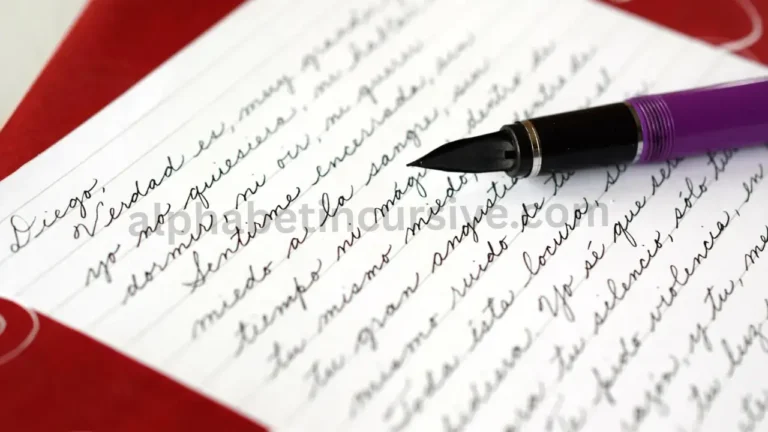 Diego,
Verdad es, muy grande
yo no quiesiera, ni hablar
dormir, ni oir, ni querer
Sentirme encerrada, sin
miedo a la sangre, sin
tiempo ni mági dentro de
tu mismo miedo, dentro de
tu gran angustia
mismo ruido de tu
Toda ésta locura, si
pidiera Yo sé que se
para tu silencio, sólo tu
Te pido violencia, en
razón, y tu, me
tu luz
alphabetincursive.com